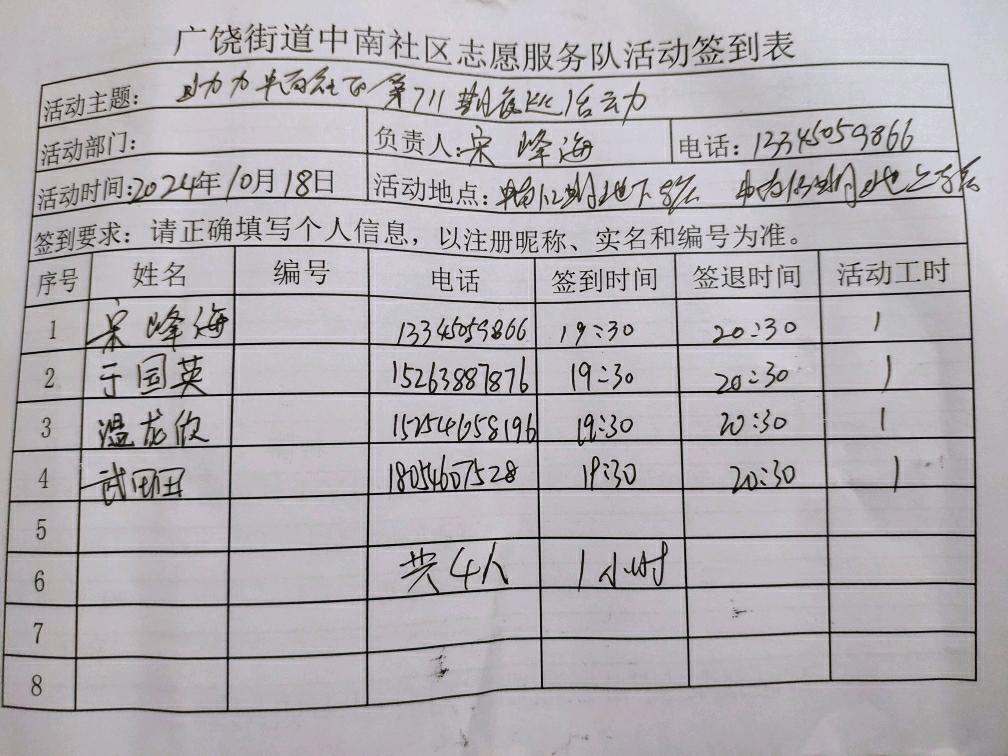 广饶街道中南社区志愿服务队活动签到表
活动主题: 助力中南社区第711期夜巡活动
活动部门: 负责人: 宋峰海 电话: 13345059866
活动时间: 2024年10月18日 活动地点:
签到要求: 请正确填写个人信息，以注册昵称、实名和编号为准。
序号 姓名 编号 电话 签到时间 签退时间 活动工时
1 宋峰海 13345059866 19:30 20:30 1
2 于国英 15263887876 19:30 20:30 1
3 温龙欣 15254658196 19:30 20:30 1
4 武田田 18054607528 19:30 20:30 1
5
6 共4人 1小时
7
8